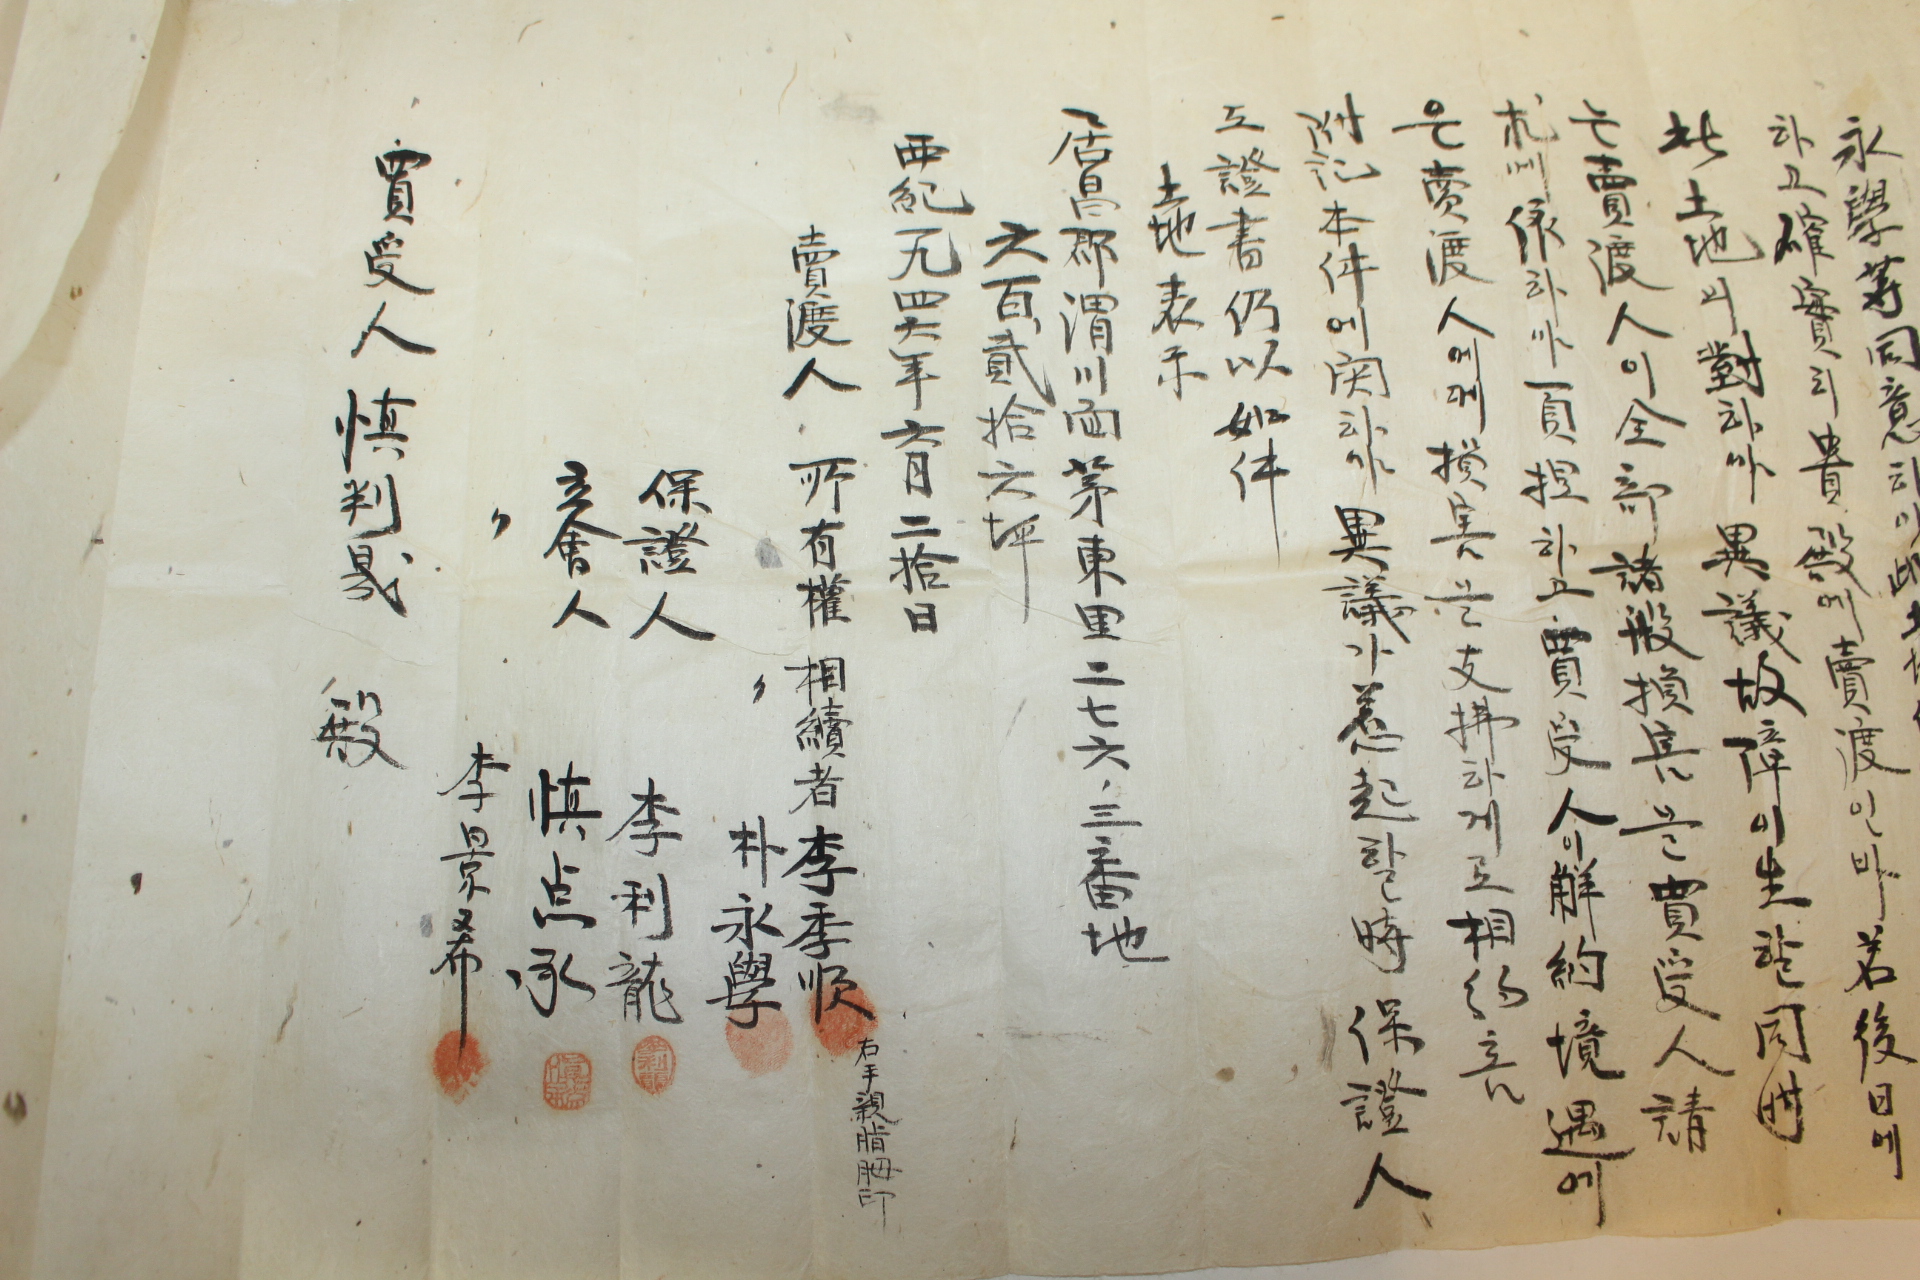 永學等同意하이此土地
하고確實리貴殿에賣渡인바若後日에
此土地의對하야異議故障이生할同時
는賣渡人이全部諸般損害을買受人請
求에依하야負担하고買受人이解約境遇에
은賣渡人에게損害을支拂하게로相約言
附記本件에関하야異議가惹起할時保證人
工證書仍以如件
土地表示
居昌郡渭川面茅東里二七六,三番地
六百貳拾六坪
西紀一九四六年六月二拾日
賣渡人 所有權相續者李季順
右手親脂拇印
〃 朴永學
保證人 李利龍
立會人 愼点承
〃 李景希
買受人 愼判晟 殿